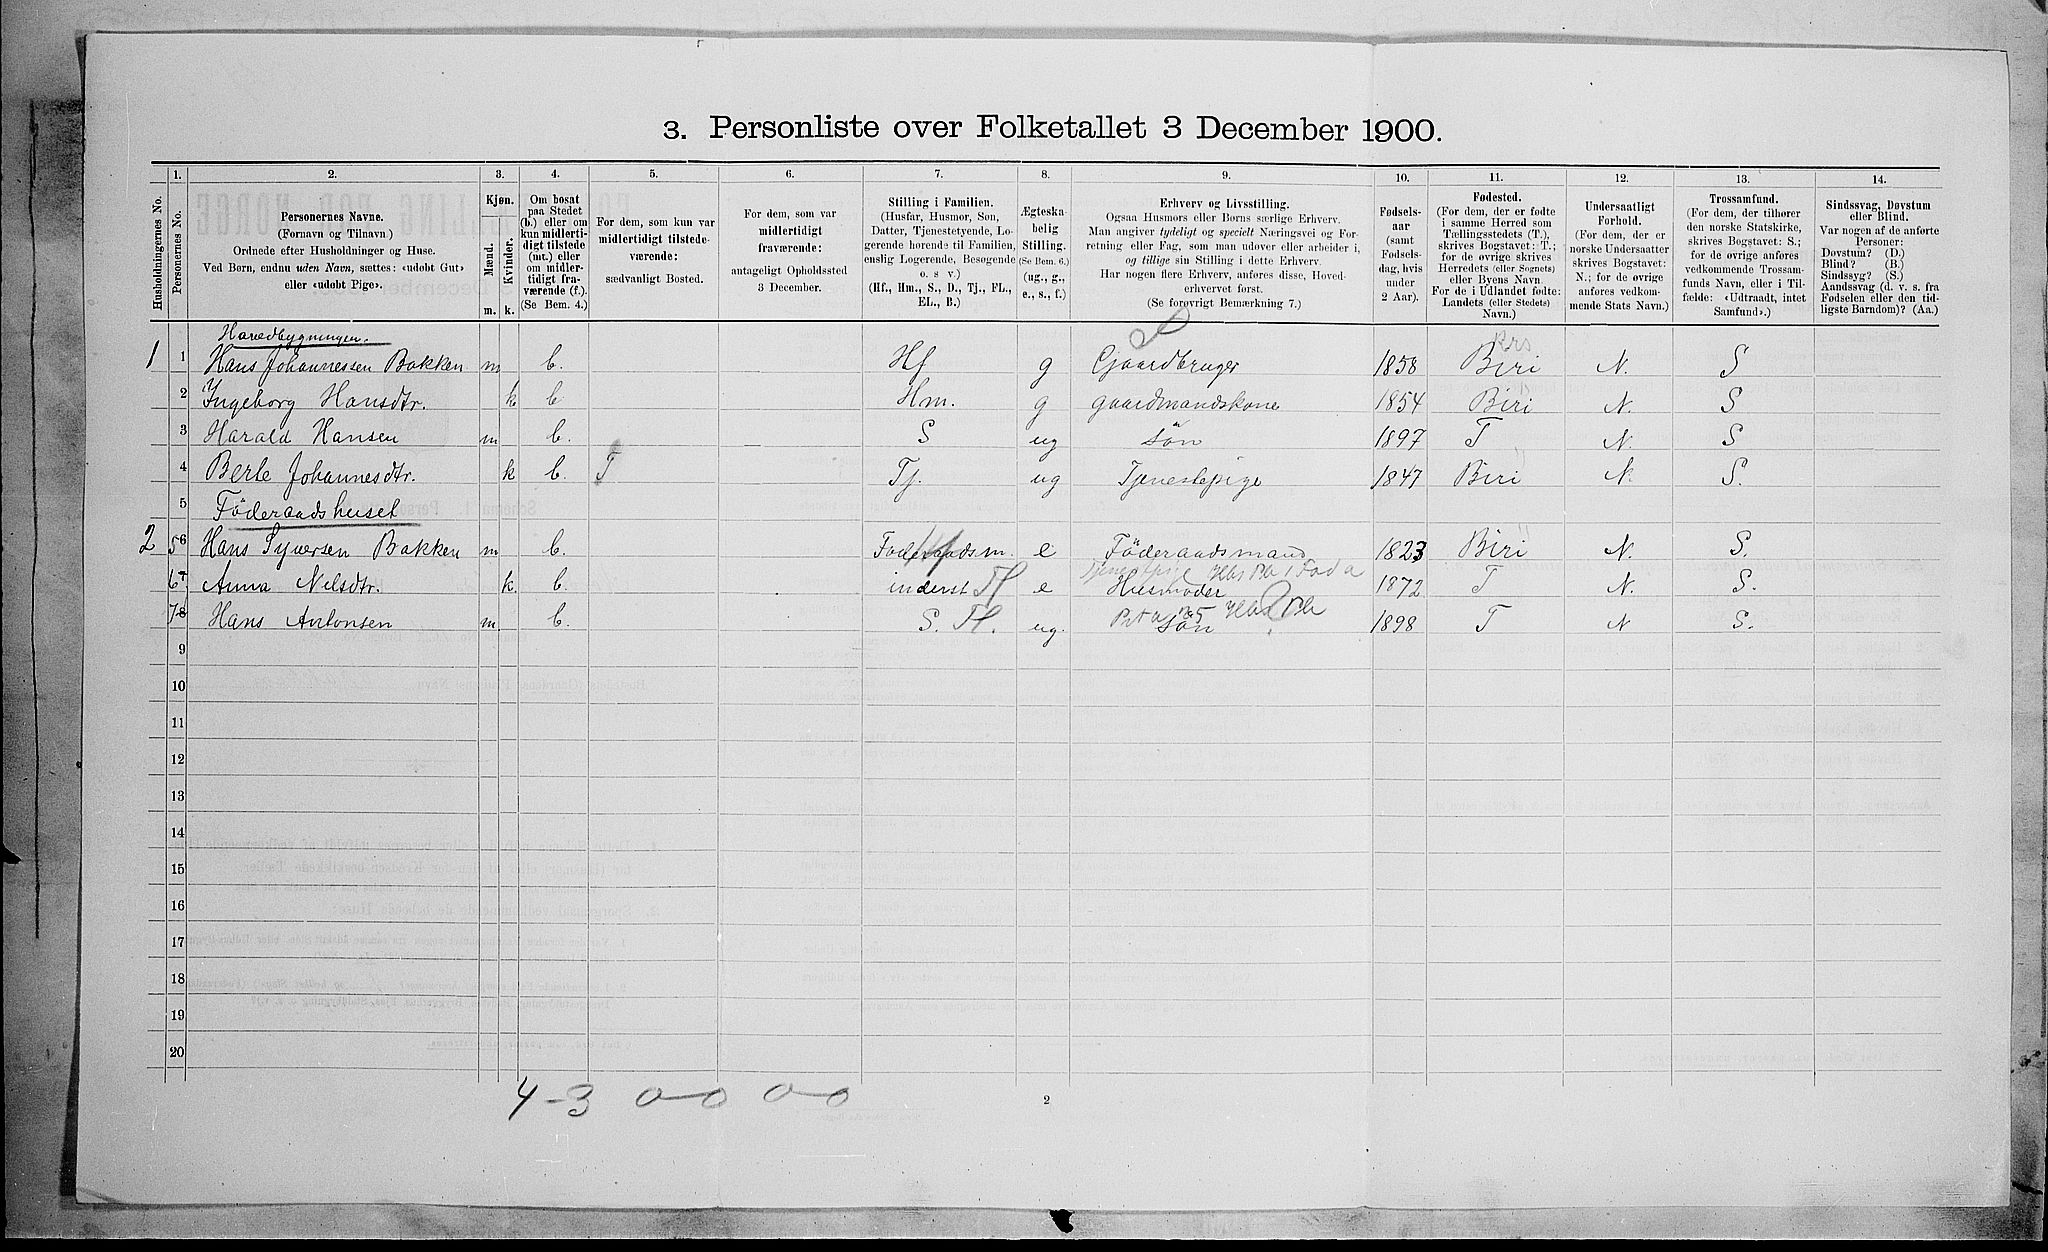 3. Personliste over Folketallet 3 December 1900.
1. 2. 3. 4. 5. 6. 7. 8. 9. 10. 11. 12. 13. 14.
Husholdningernes No.
Personernes No.
Personernes Navne.
(Fornavn og Tilnavn.)
Ordnede efter Husholdninger og Huse.
Ved Børn, endnu uden Navn, sættes: «udøbt Gut»
eller «udøbt Pige».
Kjøn.
Mænd.
Kvinder.
m. k.
Om bosat
paa Stedet
(b.) eller om
kun midlerti-
digt tilstede
(mt.) eller
om midler-
tidigt fra-
værende (f.).
(Se Bem. 4.)
For dem, som kun var
midlertidigt tilstede-
værende:
sædvanligt Bosted.
For dem, som var
midlertidigt
fraværende:
antageligt Opholdssted
3 December.
Stilling i Familien.
(Husfar, Husmor, Søn,
Datter, Tjenestetyende, Lo-
gerende hørende til Familien,
enslig Logerende, Besøgende
o. s v.)
(Hf., Hm., S., D., Tj., FL.,
EL., B.)
Ægteska-
belig
Stilling.
(Se Bem. 6.)
(ug., g.,
e., s., f.)
Erhverv og Livsstilling.
Ogsaa Husmors eller Børns særlige Erhverv.
Man angiver tydeligt og specielt Næringsvei og For-
retning eller Fag, som man udøver eller arbeider i,
og tillige sin Stilling i dette Erhverv.
Har nogen flere Erhverv, anføres disse, Hoved-
erhvervet først.
(Se forøvrigt Bemærkning 7.)
Fødsels-
aar
(samt
Fødsels-
dag, hvis
under
2 Aar).
Fødested.
(For dem, der er fødte
i samme Herred som
Tællingsstedets (T.),
skrives Bogstavet: T.;
for de øvrige skrives
Herredets (eller Sognets)
eller Byens Navn.
For de i Udlandet fødte:
Landets (eller Stedets)
Navn.)
Undersaatligt
Forhold.
(For dem, der er
norske Undersaatter
skrives Bogstavet:
N.; for de øvrige
anføres vedkom-
mende Stats Navn.)
Trossamfund.
(For dem, der tilhører
den norske Statskirke,
skrives Bogstavet: S.;
for de øvrige anføres
vedkommende Trossam-
funds Navn, eller i Til-
fælde: «Udtraadt, intet
Samfund».)
Sindssvag, Døvstum
eller Blind.
Var nogen af de anførte
Personer:
Døvstum? (D.)
Blind? (B.)
Sindssyg? (S.)
Aandssvag (d. v. s. fra
Fødselen eller den tid-
ligste Barndom)? (Aa.)
Hovedbygningen.
1 1 Hans Johannessen Bakken m b. Hf g Gjaardbruger 1858 Biri N. S
2 Ingeborg Hansdtr. k b Hm. g gaardmandskone 1854 Biri N. S
3 Harald Hansen m b. S ug søn 1897 T N S
4 Berte Johannesdtr. k b. T Tj. ug Tjenestepige 1847 Biri N. S.
5 Föderaadshuset
2 5 6 Hans Syversen Bakken m b. Foderaadsm. e Föderaadsmand 1823 Biri N. S.
6 7 Anna Nilsdtr. k b. inderst Fl e Husmoder 1872 T N. S.
7 8 Hans Antonsen m. b. S. Fl. ug. søn 1898 T N S.
9
10
11
12
13
14
15
16
17
18
19
20
4-3 0-0 0-0
2